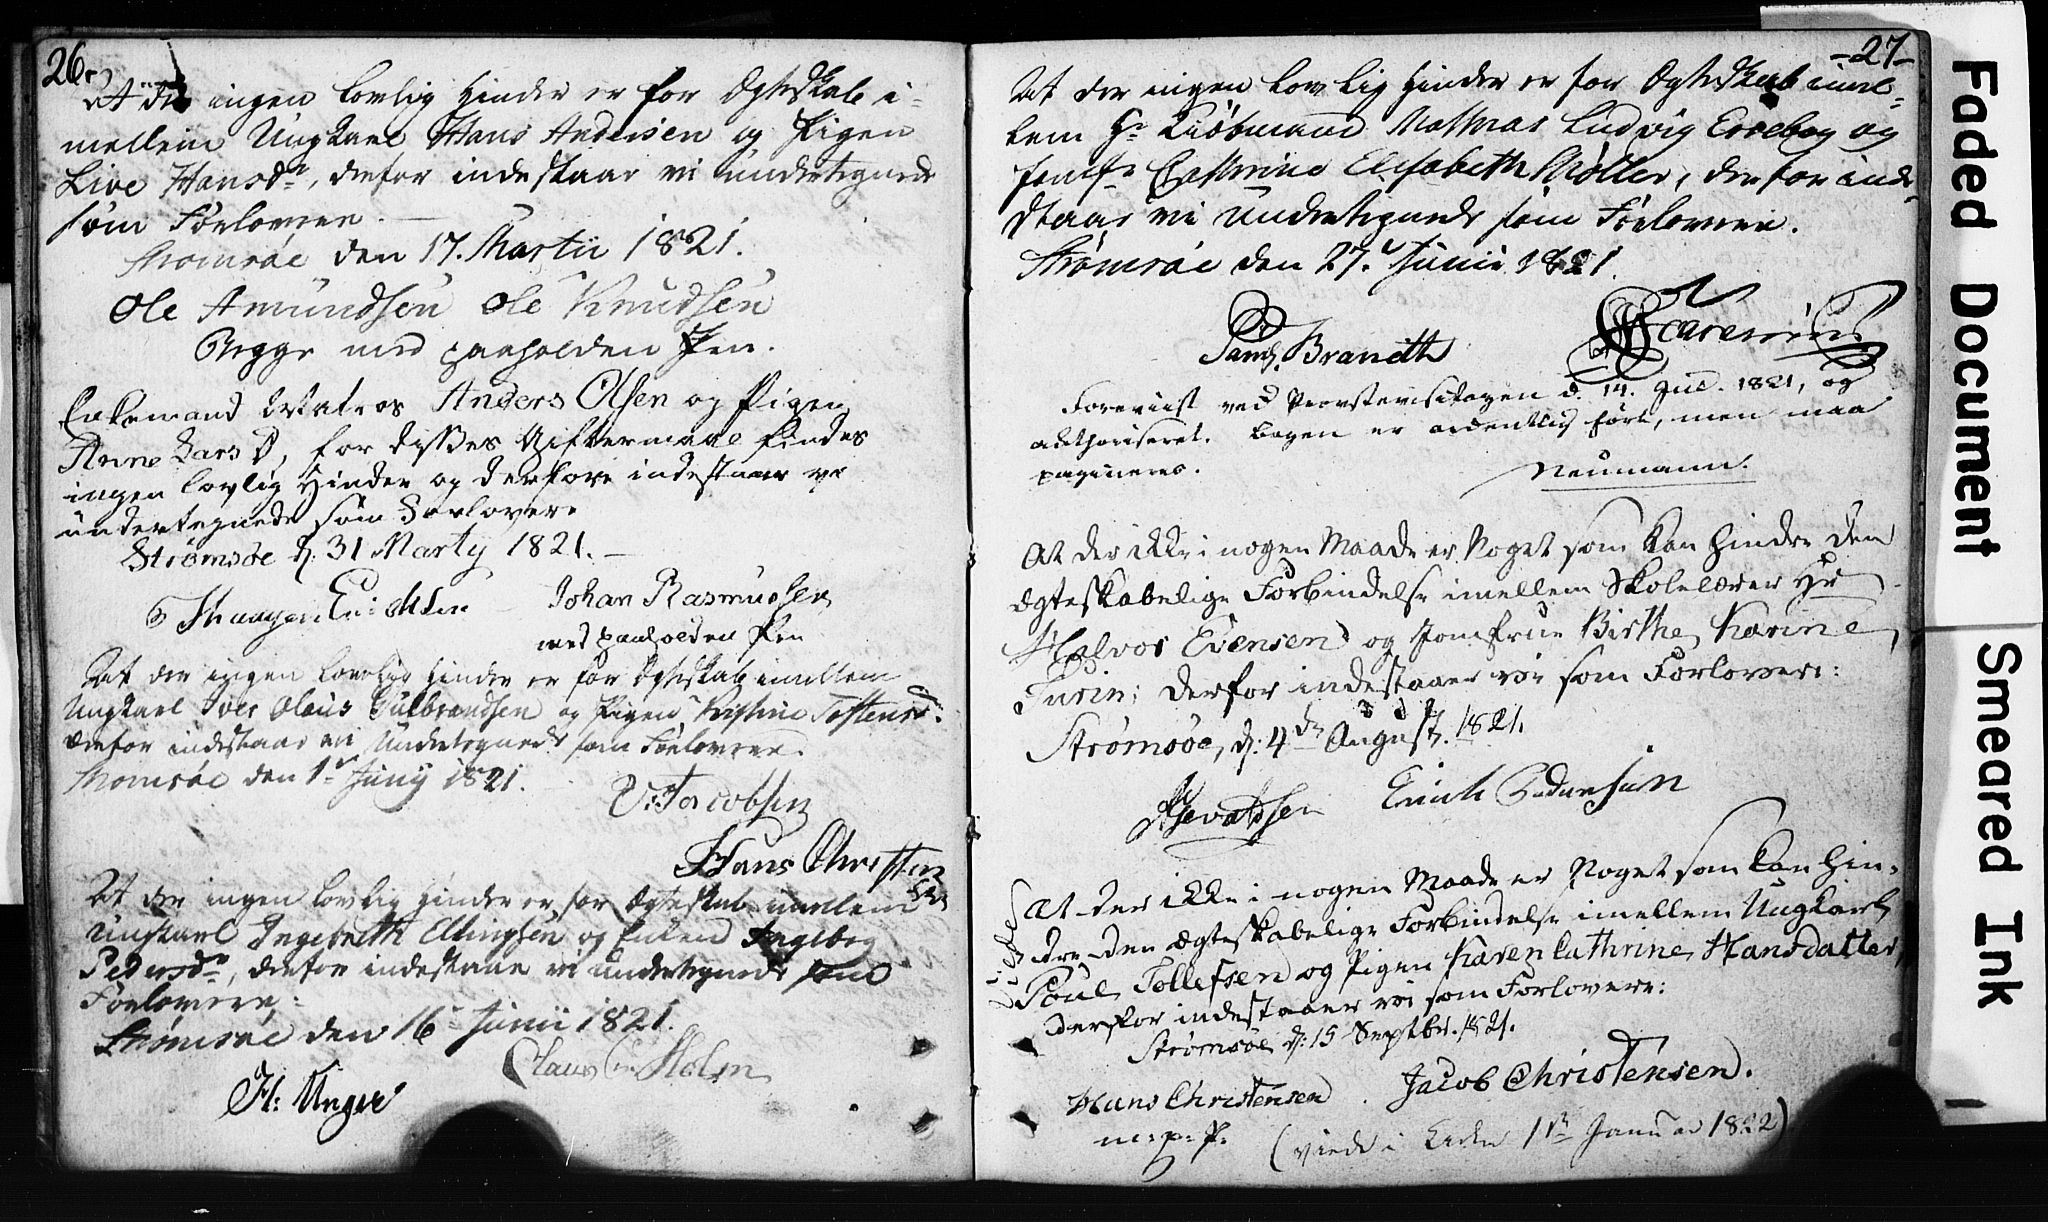 26.
At der ingen lovlig Hinder er for Ægteskab i-
mellem Ungkarl Hans Andersen og Pigen
Live Hansdr, derfor indestaar vi undertegnede
som Forlovere.
Strømsøe den 17. Martii 1821.
Ole Amundsen Ole Knudsen
Begge med paaholden Pen.
Enkemand Matros Anders Olsen og Pigen
Anne Lars D, for disses Giftermaal findes
ingen lovlig Hinder og derfore indestaaer vi
undertegnede som Forlovere
Strømsøe d: 31 Marty 1821.
Johan Rasmussen
med paaholden Pen
At der ingen lovlig Hinder er for Ægteskab imellem
Ungkarl Iver Olaus Gulbrandsen og Pigen Kristine Tostensd.
derfor indestaar vi Undertegnede som Forlovere.
Strømsøe den 1ste Juny 1821.
Jacobsen
Hans Christensen
At der ingen lovlig Hinder er for Ægteskab imellem
Ungkarl Ingebreth Ellingsen og Enken Ingebog
Pedersdr, derfor indestaae vi undertegnede som
Forlovere,
Strømsøe den 16 Junii 1821.
Claus Holm
H: Unger
-27-
At der ingen lovlig Hinder er for Ægteskab imel-
lem Hr Kiøbmand Mathias Ludvig
og
Jomfr Cathrine Elisabeth Møller, derfor inde-
staar vi Undertegnede som Forlovere.
Strømsøe den 27. Junii 1821.
Saml. Brandth
Foreviist ved Provstevisitazen d. 14. Jul. 1821, og
authoriseret. Bogen er ordentlig ført, men maa
pagineres.
Neumann.
At der ikke i nogen Maade er Noget som kan hindre den
ægteskabelige Forbindelse imellem Skolelærer Hr
Halvor Evensen og Jomfrue Birthe Karine
Turin; derfor indestaaer vi som Forlovere:
Strømsøe, d: 4de August. 1821.
At der ikke i nogen Maade er Noget som kan hin-
dre den ægteskabelige Forbindelse imellem Ungkarl
Poul Tollefsen og Pigen Karen Cathrine Hansdatter,
derfor indestaaer vi som Forlovere:
Strømsøe d: 15 Septbr. 1821.
Hans Christensen Jacob Christensen.
m: p: P.
(viede i Kirken 1ste Januar 1822)
Faded Document
Smeared Ink